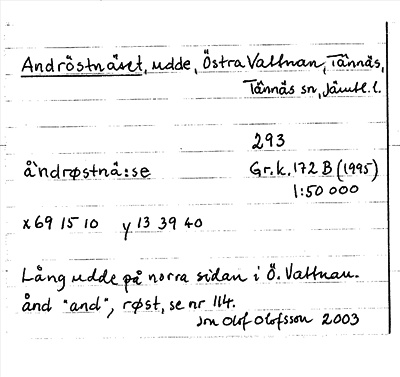 Andröstnäset, udde, Östra Vattnan, Tännäs,
Tännäs sn, Jämtl. l.
293
å`ndrøstnä:se Gr.k. 172 B (1995)
1:50 000
x 69 15 10 y 13 39 40
Lång udde på norra sidan i Ö. Vattnan.
ånd "and", røst, se nr 114.
Jon Olof Olofsson 2003